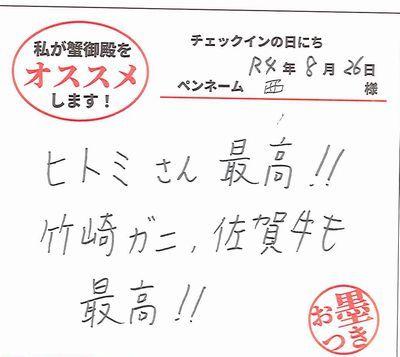 私が蟹御殿を
オススメ
します！
チェックインの日にち
R4年8月26日
ペンネーム 西 様
ヒトミさん 最高!!
竹崎ガニ、佐賀牛も
最高!!
お墨
つき